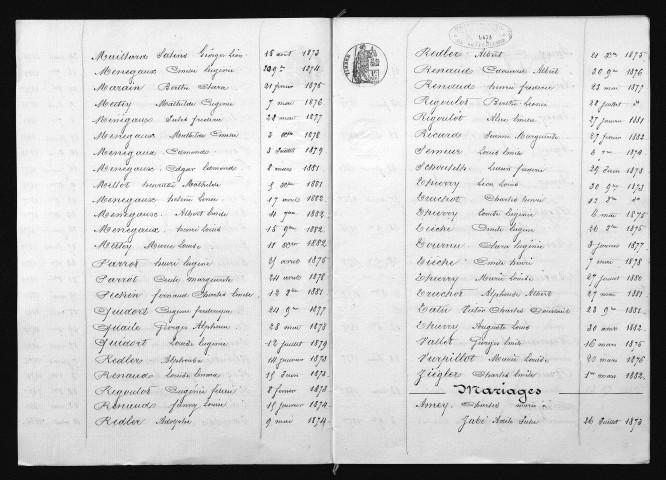 Maillard Julius Georges Léon 15 août 1873
Menegaux Emile Eugène 29 9bre 1874
Marain Berthe Clara 21 février 1875
Metey Mathilde Eugénie 7 mai 1876
Menegaux Jules Frédéric 28 mai 1877
Menegaux Mathilde Emilie 3 1878
Menegaux Edmond 3 juillet 1879
Menegaux Edgar Edmond 2 mars 1881
Millot Henriette Mathilde 5 1881
Menegaux Hélène Louise 17 avril 1882
Menegaux Albert Emile 4 1882
Menegaux Henri Louis 15 9bre 1882
Metey Marie Louise 11 1882
Parrot Henri Eugène 25 avril 1876
Parrot Marguerite 24 avril 1878
Pechin Fernand Charles Emile 12 1881
Quidort Eugène Frédérique 24 9bre 1877
Quaile Georges Alphonse 28 mai 1878
Quidort Louise Eugénie 12 juillet 1879
Redler Alphonse 14 janvier 1873
Renaud Louise Emma 15 juin 1873
Rigoulot Eugénie 8 février 1873
Renaud Fanny Louise 15 janvier 1874
Redler Adolphe 9 mai 1874
TIMBRE
Redler Albert 21 1875
Renaud Edouard Albert 30 9bre 1876
Renaud Henri Frédéric 23 mai 1877
Rigoulot Berthe Léonie 28 juillet
Rigoulot Alice Emilie 27 janvier 1881
Ricard Jeanne Marguerite 27 février 1882
Semeur Louis Emile 1874
Lucien Frédéric 29 juin 1873
Thierry Léon Louis 30 9bre 1873
Truchot Charles Henri
Thierry Emile Eugène 6 mai 1875
Tièche Emile Eugène 26 1875
Tournu Clara Eugénie 3 janvier 1877
Tièche Emile Henri 7 mai 1878
Thierry Marie Louise 27 juillet 1880
Truchot Alphonse Albert 27 mai 1881
Tatu Victor Charles Edouard 23 9bre 1881
Thierry Auguste Louis 30 avril 1882
Vallet Georges Emile 16 mars 1875
Vurpillot Marie Louise 20 mars 1876
Ziegler Charles Emile 1er mai 1882
Mariages
Amey Charles à
Zabé Adèle Julie 26 juillet 1873